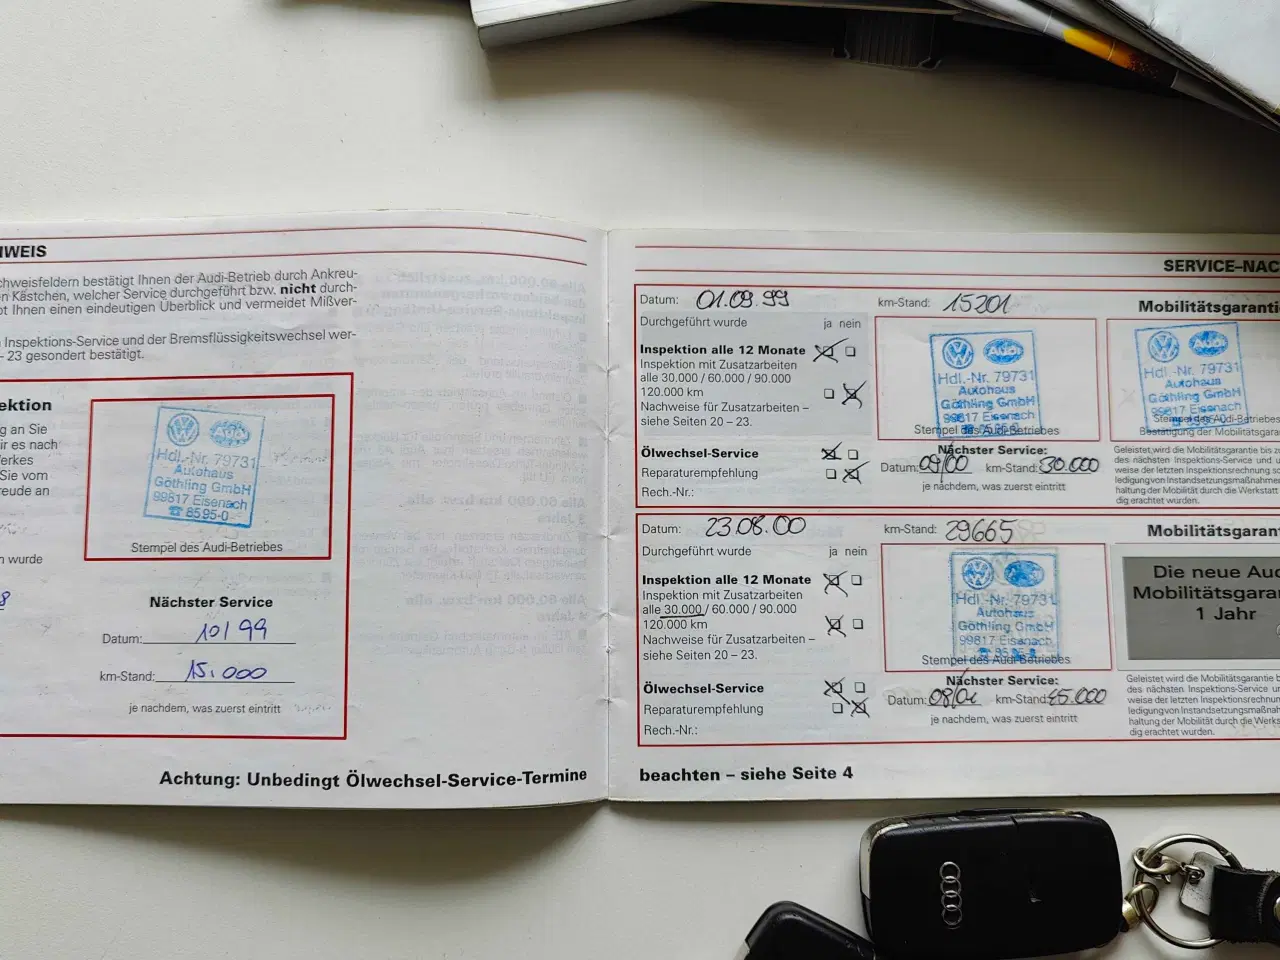 WEIS
chweisfeldern bestätigt Ihnen der Audi-Betrieb durch Ankreu-
n Kästchen, welcher Service durchgeführt bzw. nicht durch-
bt Ihnen einen eindeutigen Überblick und vermeidet Mißver-
Inspektions-Service und der Bremsflüssigkeitswechsel wer-
– 23 gesondert bestätigt.
ektion
g an Sie
ir es nach
erkes
Sie vom
reude an
n wurde
8
Hdl.-Nr. 79731
Autohaus
Göthling GmbH
99817 Eisenach
☎ 8595-0
Stempel des Audi-Betriebes
Nächster Service
Datum: 10/99
km-Stand: 15.000
je nachdem, was zuerst eintritt
Achtung: Unbedingt Ölwechsel-Service-Termine
SERVICE–NAC
Datum: 01.09.99
km-Stand: 15201
Mobilitätsgaranti
Durchgeführt wurde ja nein
Inspektion alle 12 Monate
Inspektion mit Zusatzarbeiten
alle 30.000 / 60.000 / 90.000
120.000 km
Nachweise für Zusatzarbeiten –
siehe Seiten 20 – 23.
Ölwechsel-Service
Reparaturempfehlung
Rech.-Nr.:
Audi
Hdl.-Nr. 79731
Autohaus
Göthling GmbH
99817 Eisenach
Stempel des Audi-Betriebes
Nächster Service:
Datum: 09/00 km-Stand: 30.000
je nachdem, was zuerst eintritt
Audi
Hdl.-Nr. 79731
Autohaus
Göthling GmbH
99817 Eisenach
Stempel des Audi-Betriebes
Bestätigung der Mobilitätsgara
Geleistet wird die Mobilitätsgarantie bis z
des nächsten Inspektions-Service und u
weise der letzten Inspektionsrechnung so
ledigung von Instandsetzungsmaßnahmen
haltung der Mobilität durch die Werkstatt
dig erachtet wurden.
Datum: 23.08.00
km-Stand: 29665
Mobilitätsgaran
Durchgeführt wurde ja nein
Inspektion alle 12 Monate
Inspektion mit Zusatzarbeiten
alle 30.000 / 60.000 / 90.000
120.000 km
Nachweise für Zusatzarbeiten –
siehe Seiten 20 – 23.
Ölwechsel-Service
Reparaturempfehlung
Rech.-Nr.:
Hdl.-Nr. 79731
Autohaus
Göthling GmbH
99817 Eisenach
Stempel des Audi-Betriebes
Nächster Service:
Datum: 08/01 km-Stand: 45.000
je nachdem, was zuerst eintritt
Die neue Aud
Mobilitätsgaran
1 Jahr
Geleistet wird die Mobilitätsgarantie b
des nächsten Inspektions-Service un
weise der letzten Inspektionsrechnun
ledigung von Instandsetzungsmaßnah
haltung der Mobilität durch die Werks
dig erachtet wurden.
beachten – siehe Seite 4